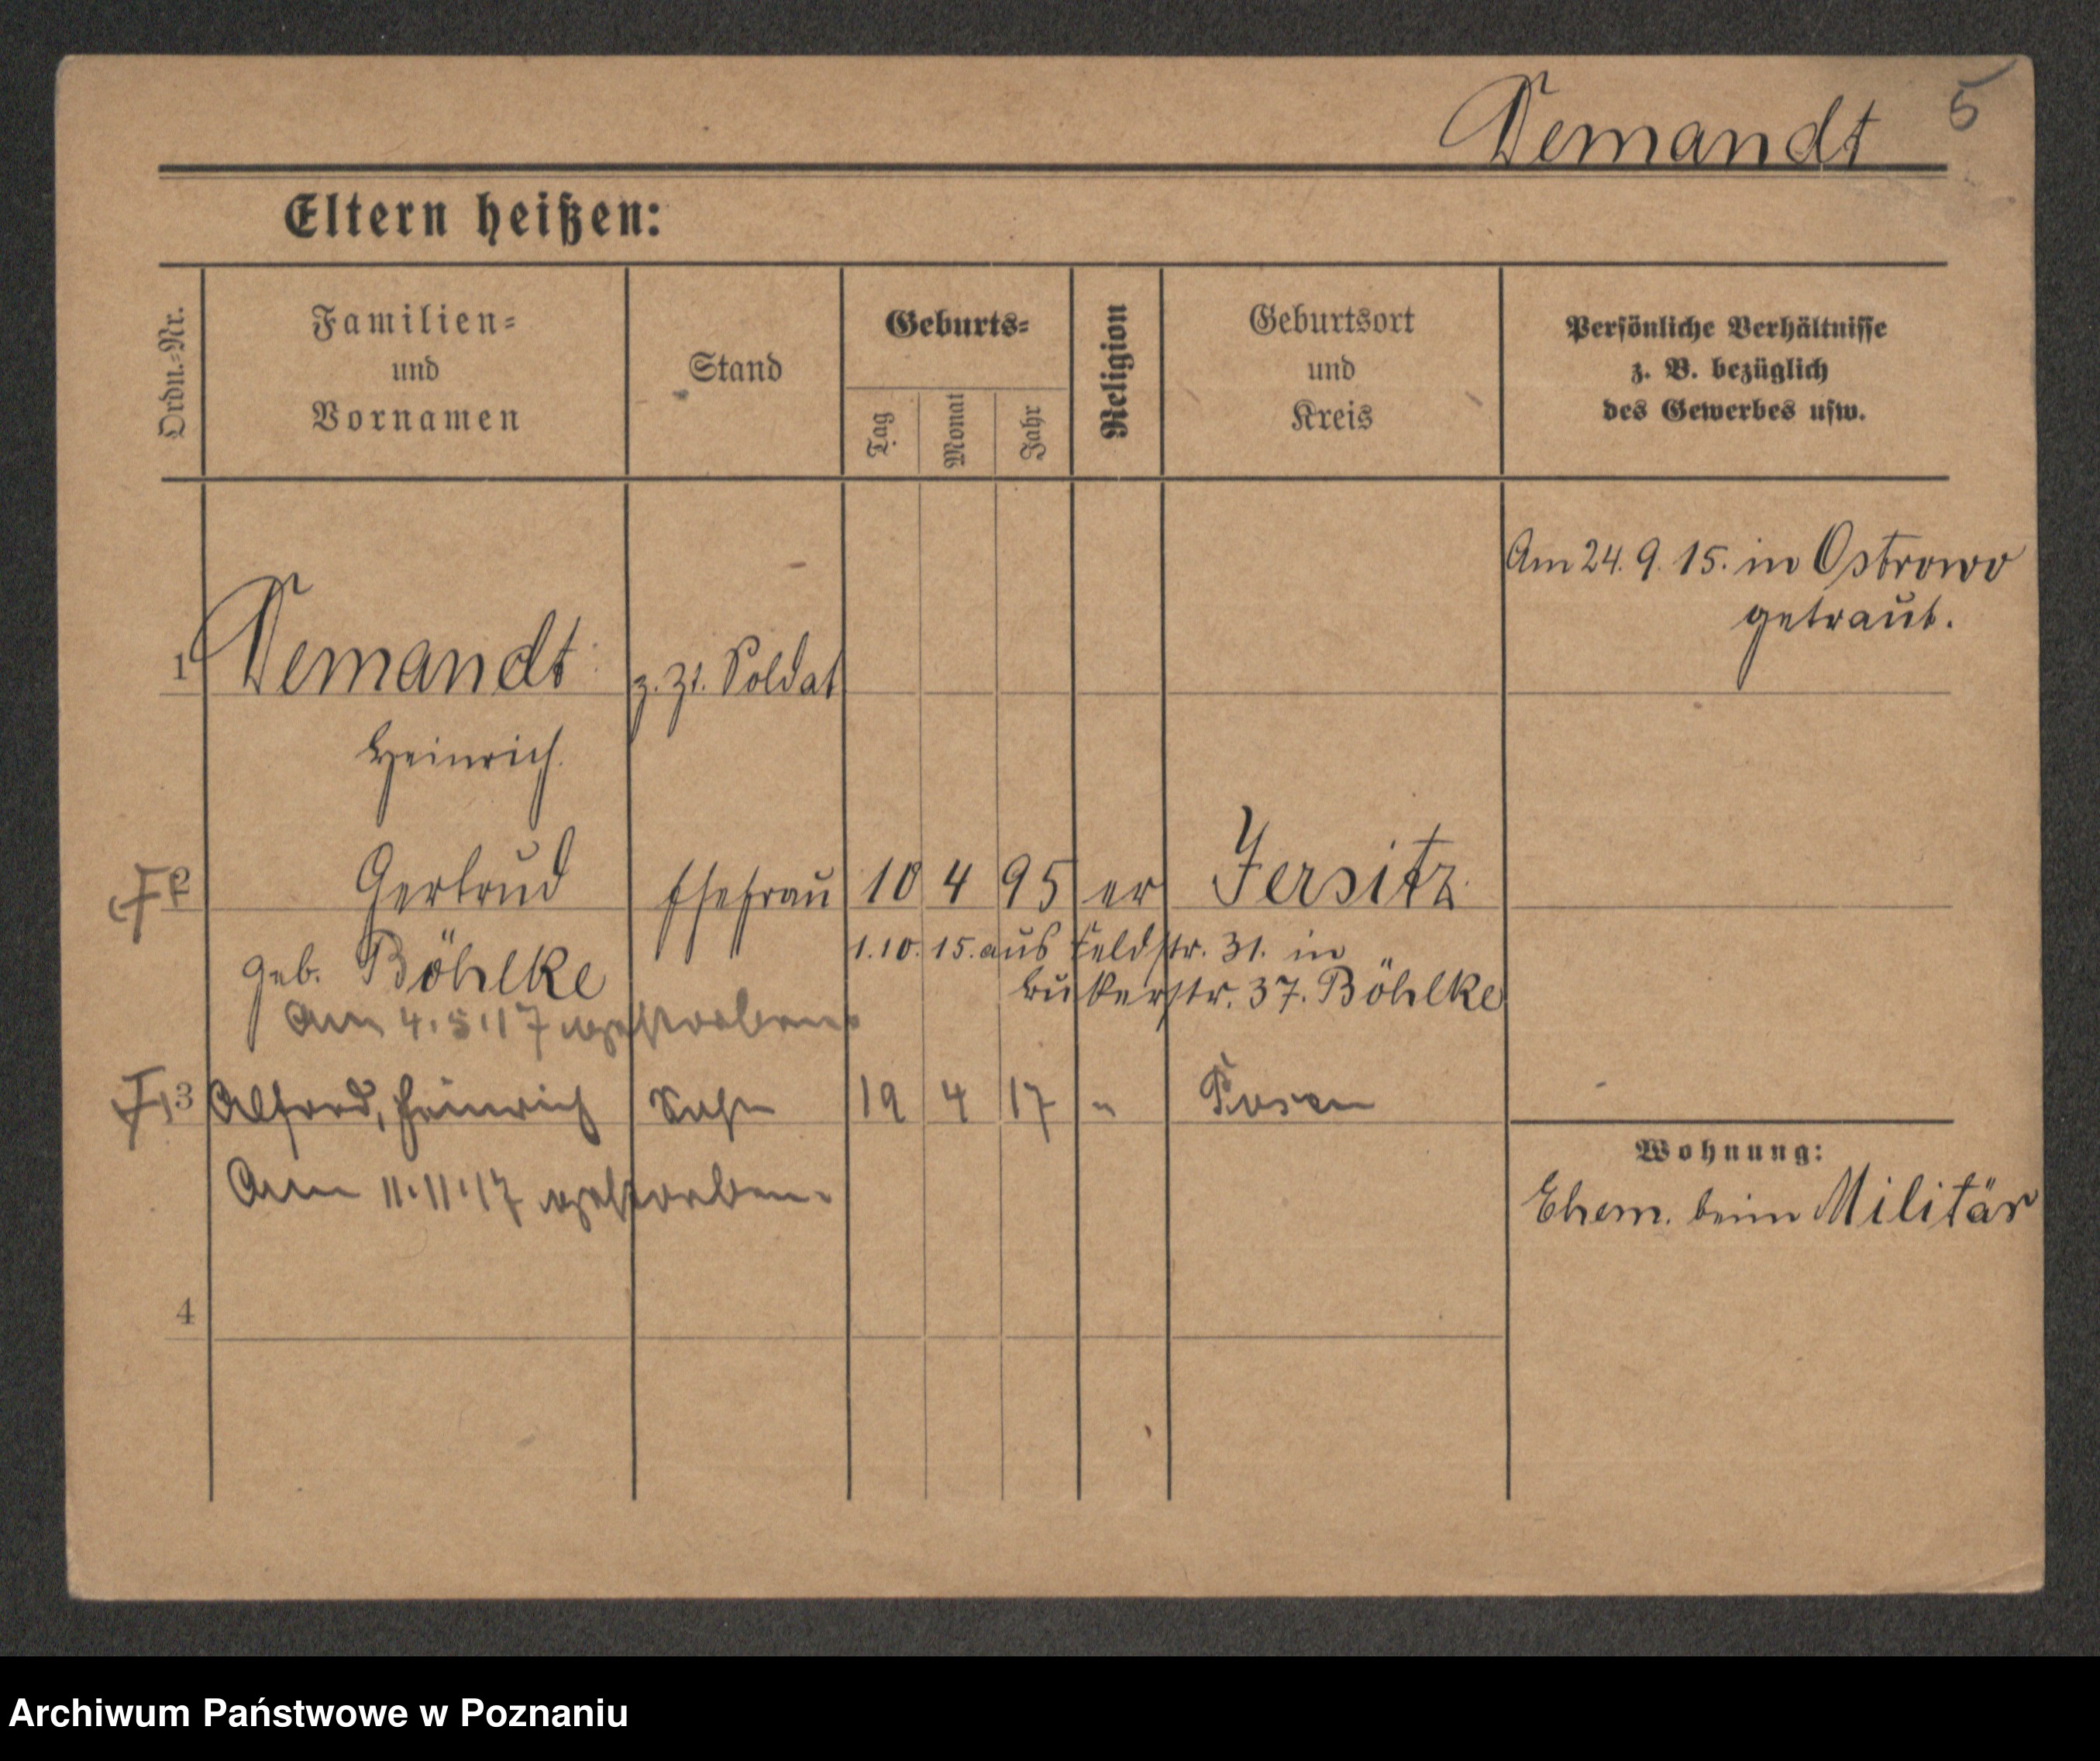 Demandt 5
Eltern heißen:
Ordn.-Nr.
Familien-
und
Vornamen
Stand
Geburts-
Tag
Monat
Jahr
Religion
Geburtsort
und
Kreis
Persönliche Verhältnisse
z. B. bezüglich
des Gewerbes usw.
Am 24. 9. 15. in Ostrowo
getraut.
1 Demandt z. Zt. Soldat
Heinrich.
2 Gertrud Ehefrau 10 4 95 ev Jersitz
1. 10. 15. aus Feldstr. 31. in
geb. Böhlke
Bukerstr. 37. Böhlke
Am 4.5.17 gestorben.
3 Alfred, Heinrich Sohn 19 4 17 " Posen
Am 11.11.17 gestorben.
Wohnung:
Ehem. beim Militär
4
Archiwum Państwowe w Poznaniu